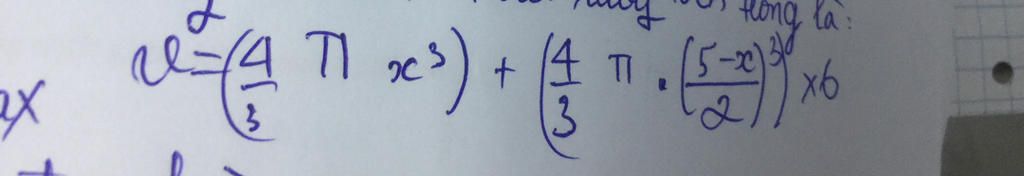 trong là:
V = (4/3 π x³) + (4/3 π . ((5-x)/2)³) x6